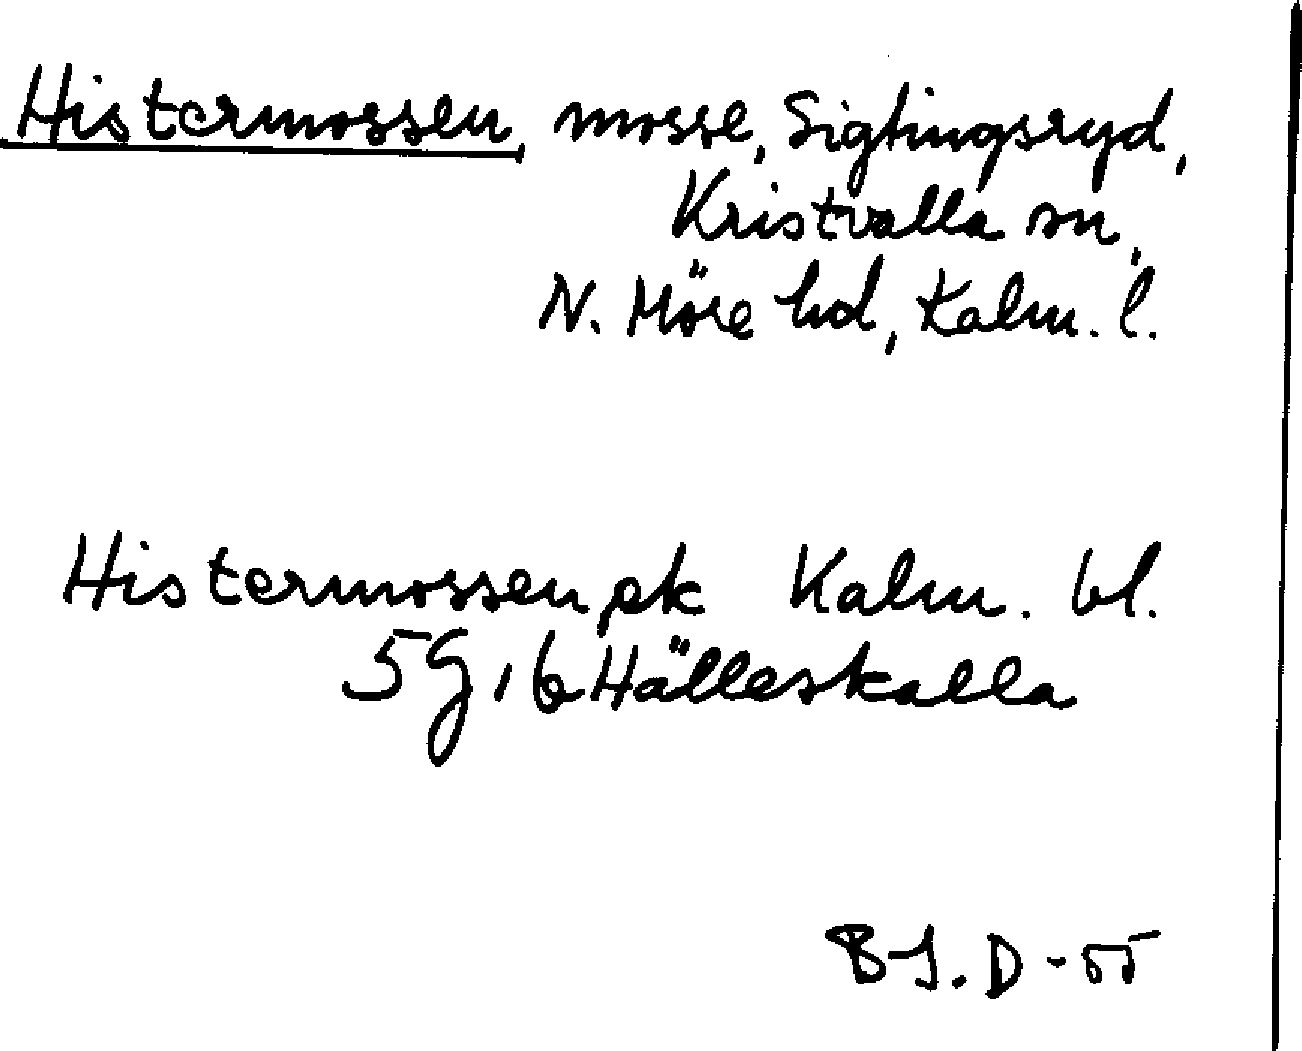 Histermossen, mosse, Siglingsryd,
Kristvalla sn,
N. Möre hd, Kalm. l.
Histermossen ek Kalm. bl.
5G, 6 Hälleskalla
BJ.D-55